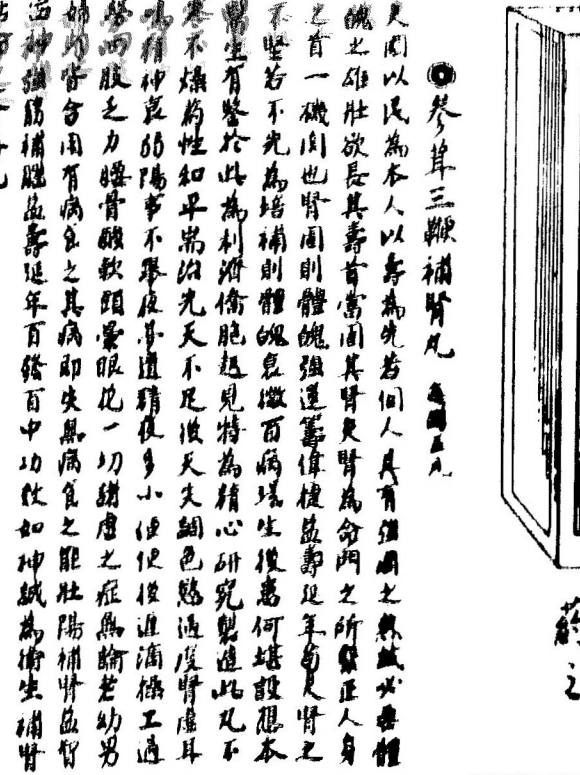 參茸三鞭補腎丸 每瓶五九
夫國以民為本人以壽為先若個人具有強國之熱誠必要體
魄之雄壯欲長其壽首當固其腎夫腎為命門之所繫正人身
之首一機関也腎固則體魄強運籌偉捷益壽延年苟夫腎之
不堅若不先為培補則體魄衰微百病壔生後患何堪設想本
醫生有鑒於此為利濟僑胞起見特為精心研究製造此丸不
寒不燥為性和平耑治先天不足後天失調色慾過度腎虛耳
鳴精神衰弱陽事不舉夜夢遺精夜多小便便後遺滴操工過
勞四肢乏力腰骨酸軟頭暈眼花一切諸虛之症無論老幼男
婦均皆合用有病食之其病即失無病食之能壯陽補腎益智
寧神強筋補腦益壽延年百發百中功效如神誠為衛生補腎